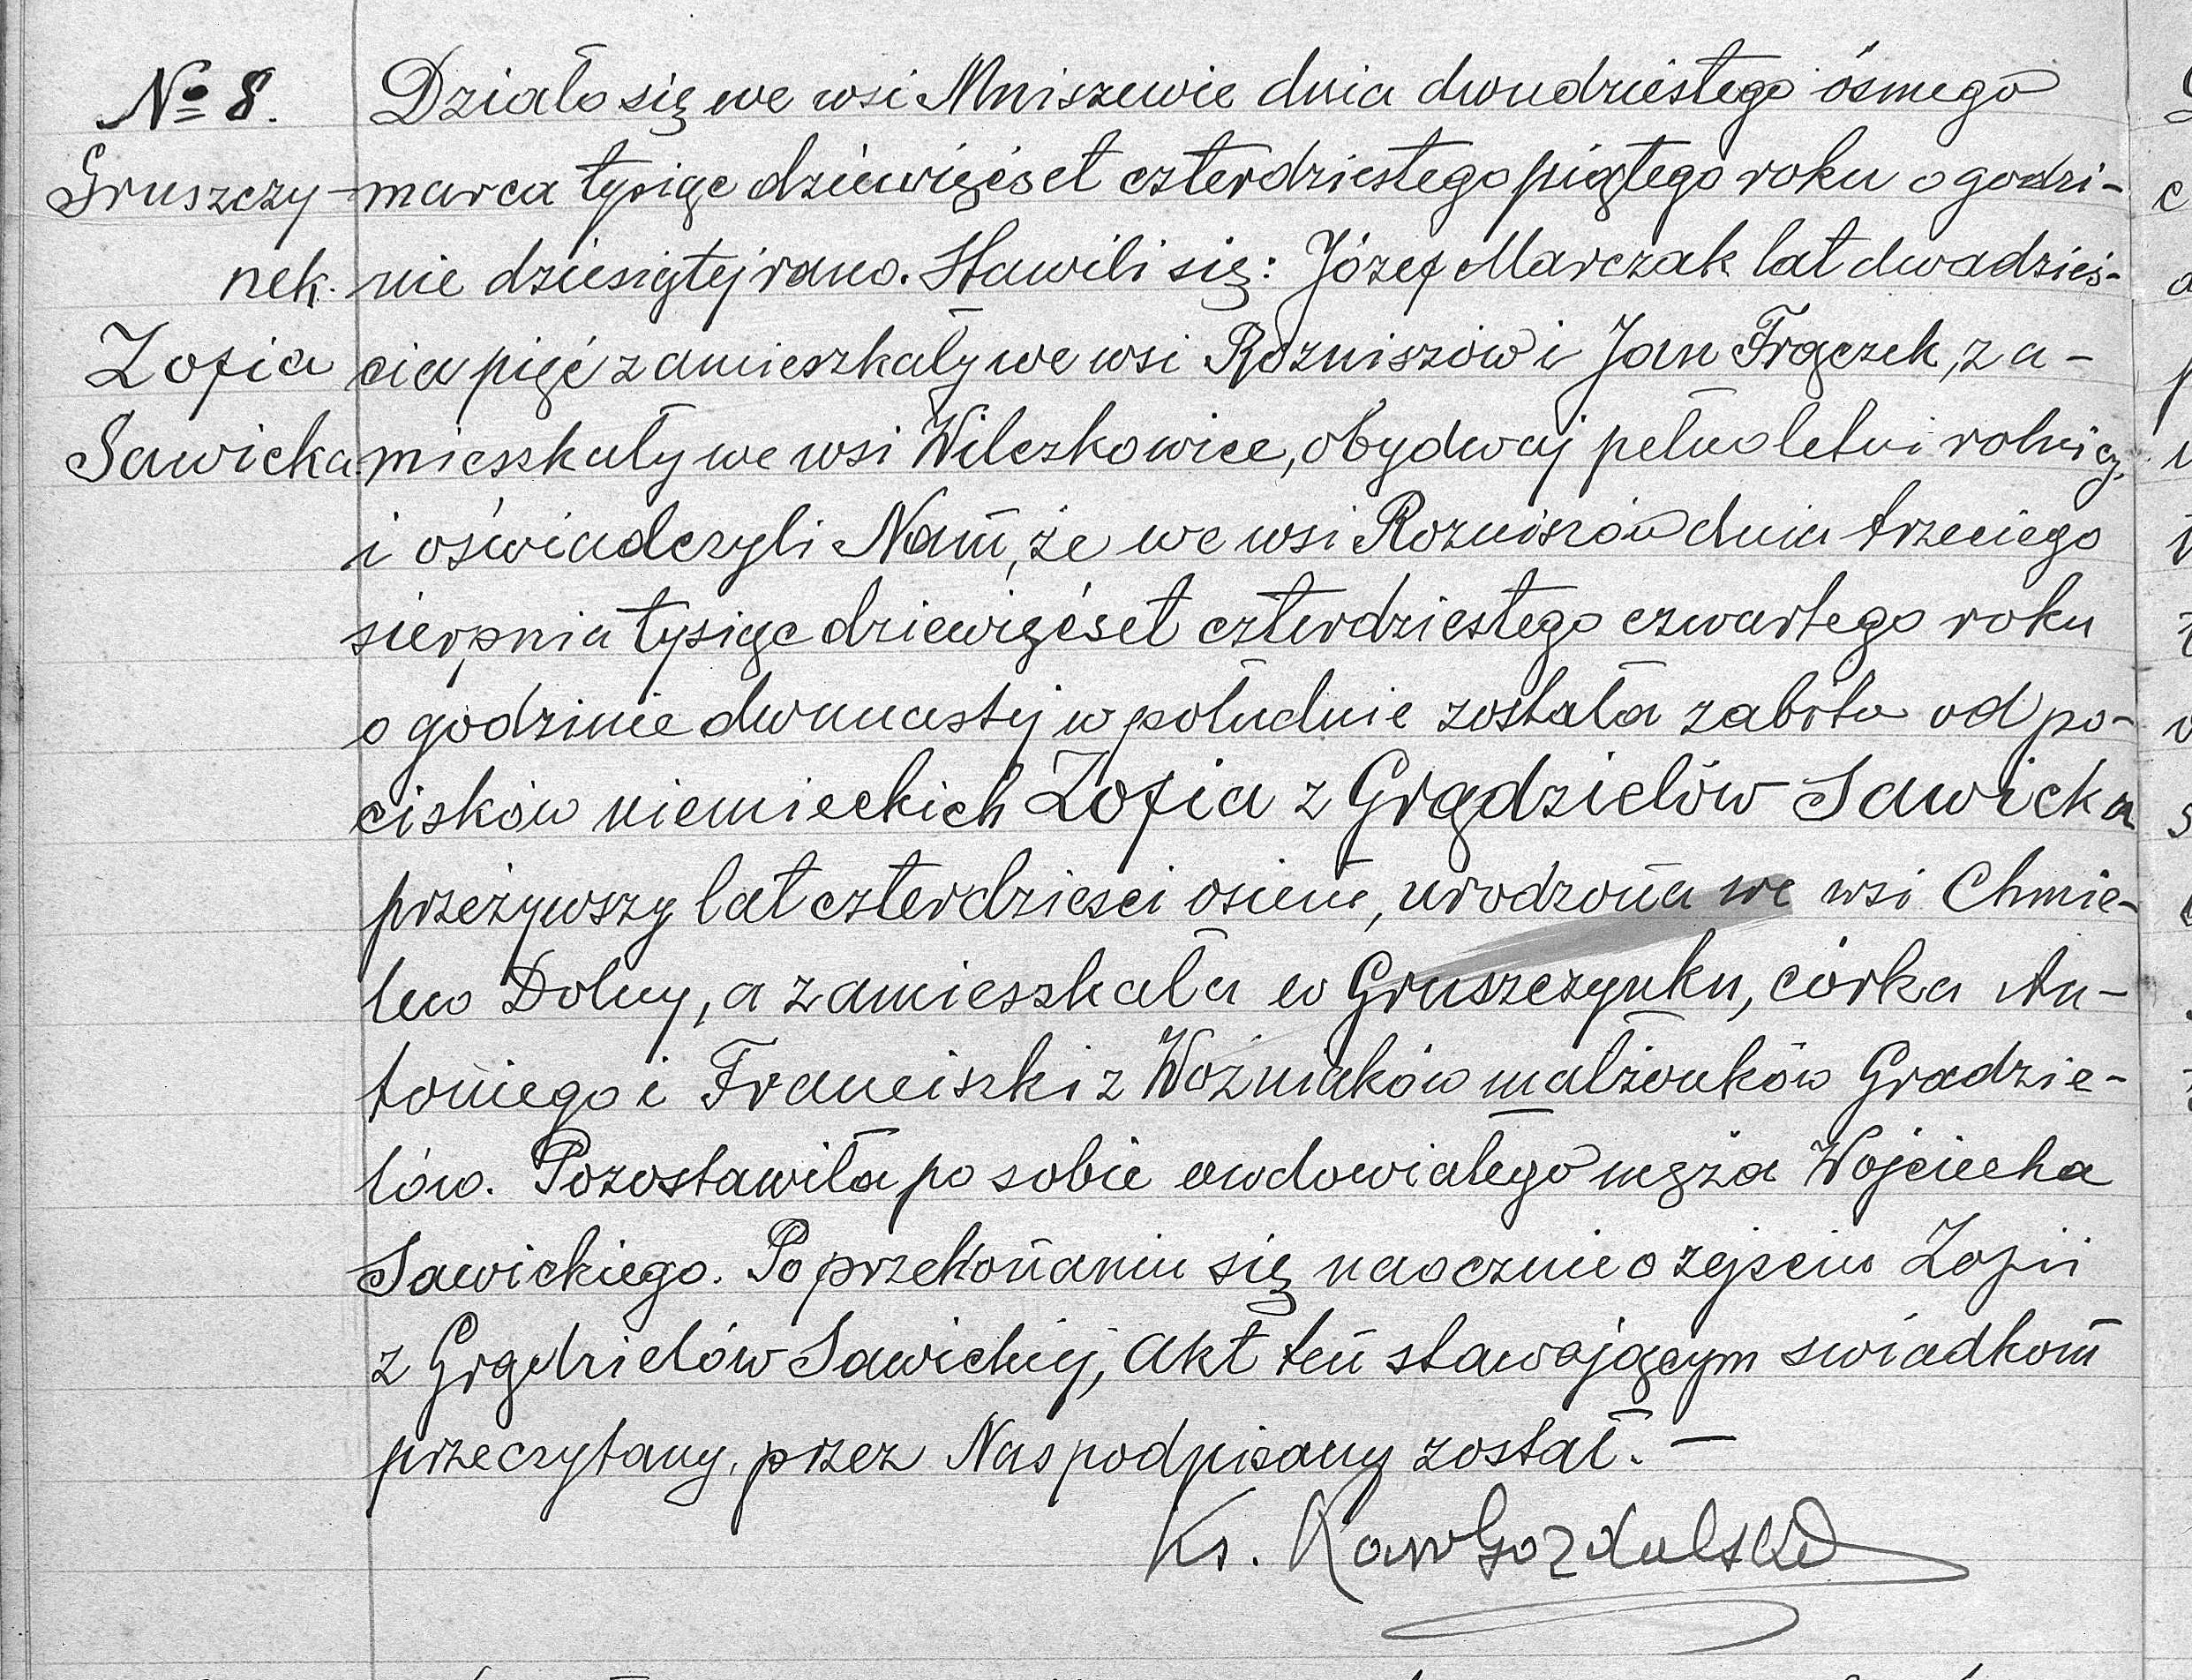 No 8.
Gruszczy-
nek.
Zofia
Sawicka.
Działo się we wsi Mniszewie dnia dwudziestego ósmego
marca tysiąc dziewięćset czterdziestego piątego roku o godzi-
nie dziesiątej rano. Stawili się: Józef Marczak lat dwadzieś-
cia pięć zamieszkały we wsi Rozniszów i Jan Frączek, za-
mieszkały we wsi Wilczkowice, obydwaj pełnoletni rolnicy,
i oświadczyli Nam, że we wsi Rozniszów dnia trzeciego
sierpnia tysiąc dziewięćset czterdziestego czwartego roku
o godzinie dwunastej w południe została zabita od po-
cisków niemieckich Zofia z Grądzielów Sawicka
przeżywszy lat czterdzieści osiem, urodzona we wsi Chmie-
lew Dolny, a zamieszkała w Gruszczynku, córka An-
toniego i Franciszki z Woźniaków małżonków Gradzie-
lów. Pozostawiła po sobie owdowiałego męża Wojciecha
Sawickiego. Po przekonaniu się naocznie o zejściu Zofii
z Grądzielów Sawickiej, akt ten stawającym świadkom
przeczytany, przez Nas podpisany został. —
Ks.